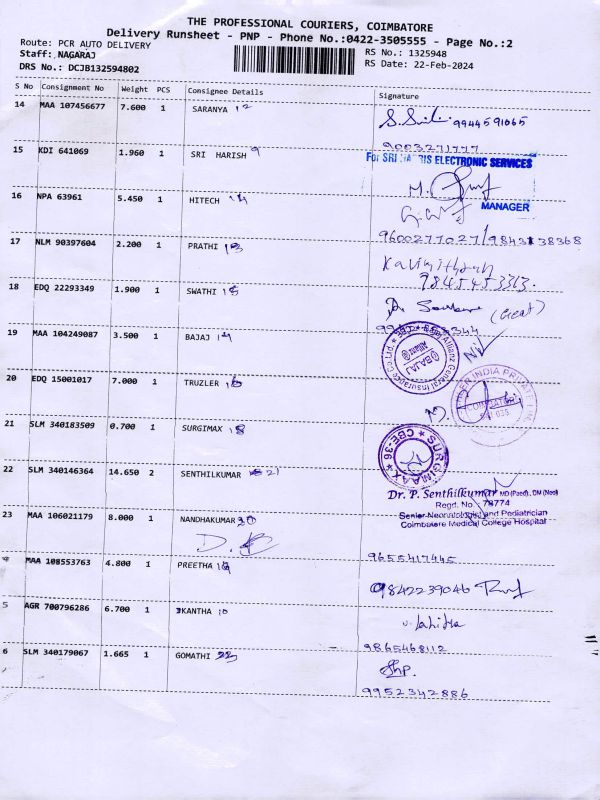 THE PROFESSIONAL COURIERS, COIMBATORE
Delivery Runsheet - PNP - Phone No.:0422-3505555 - Page No.:2
Route: PCR AUTO DELIVERY
RS No.: 1325948
Staff: NAGARAJ
RS Date: 22-Feb-2024
DRS No.: DCJB132594802
S No Consignment No Weight PCS Consignee Details Signature
14 MAA 107456677 7.600 1 SARANYA 12
9944591065
9003271777
15 KDI 641069 1.960 1 SRI HARISH 9
For SRI ELECTRONIC SERVICES
MANAGER
16 NPA 63961 5.450 1 HITECH 14
9600277027/9843138368
17 NLM 90397604 2.200 1 PRATHI 13
9845453313.
18 EDQ 22293349 1.900 1 SWATHI 15
19 MAA 104249087 3.500 1 BAJAJ 14
BAJAJ Allianz
Allianz General Insurance Co.Ltd.
20 EDQ 15001017 7.000 1 TRUZLER 16
INDIA PRIVATE
21 SLM 340183509 0.700 1 SURGIMAX 18
SURGIMAAX
CBE-36
22 SLM 340146364 14.650 2 SENTHILKUMAR 21
Dr. P. Senthilkumar MD (Paed)., DM (Neo)
Regd. No. : 78774
Senior Neonatologist and Pediatrician
Coimbatore Medical College Hospital
23 MAA 106021179 8.000 1 NANDHAKUMAR 30
9655417445
MAA 108553763 4.800 1 PREETHA
9842239046
5 AGR 700796286 6.700 1 IKANTHA 10
9865468112
6 SLM 340179067 1.665 1 GOMATHI
9952342886